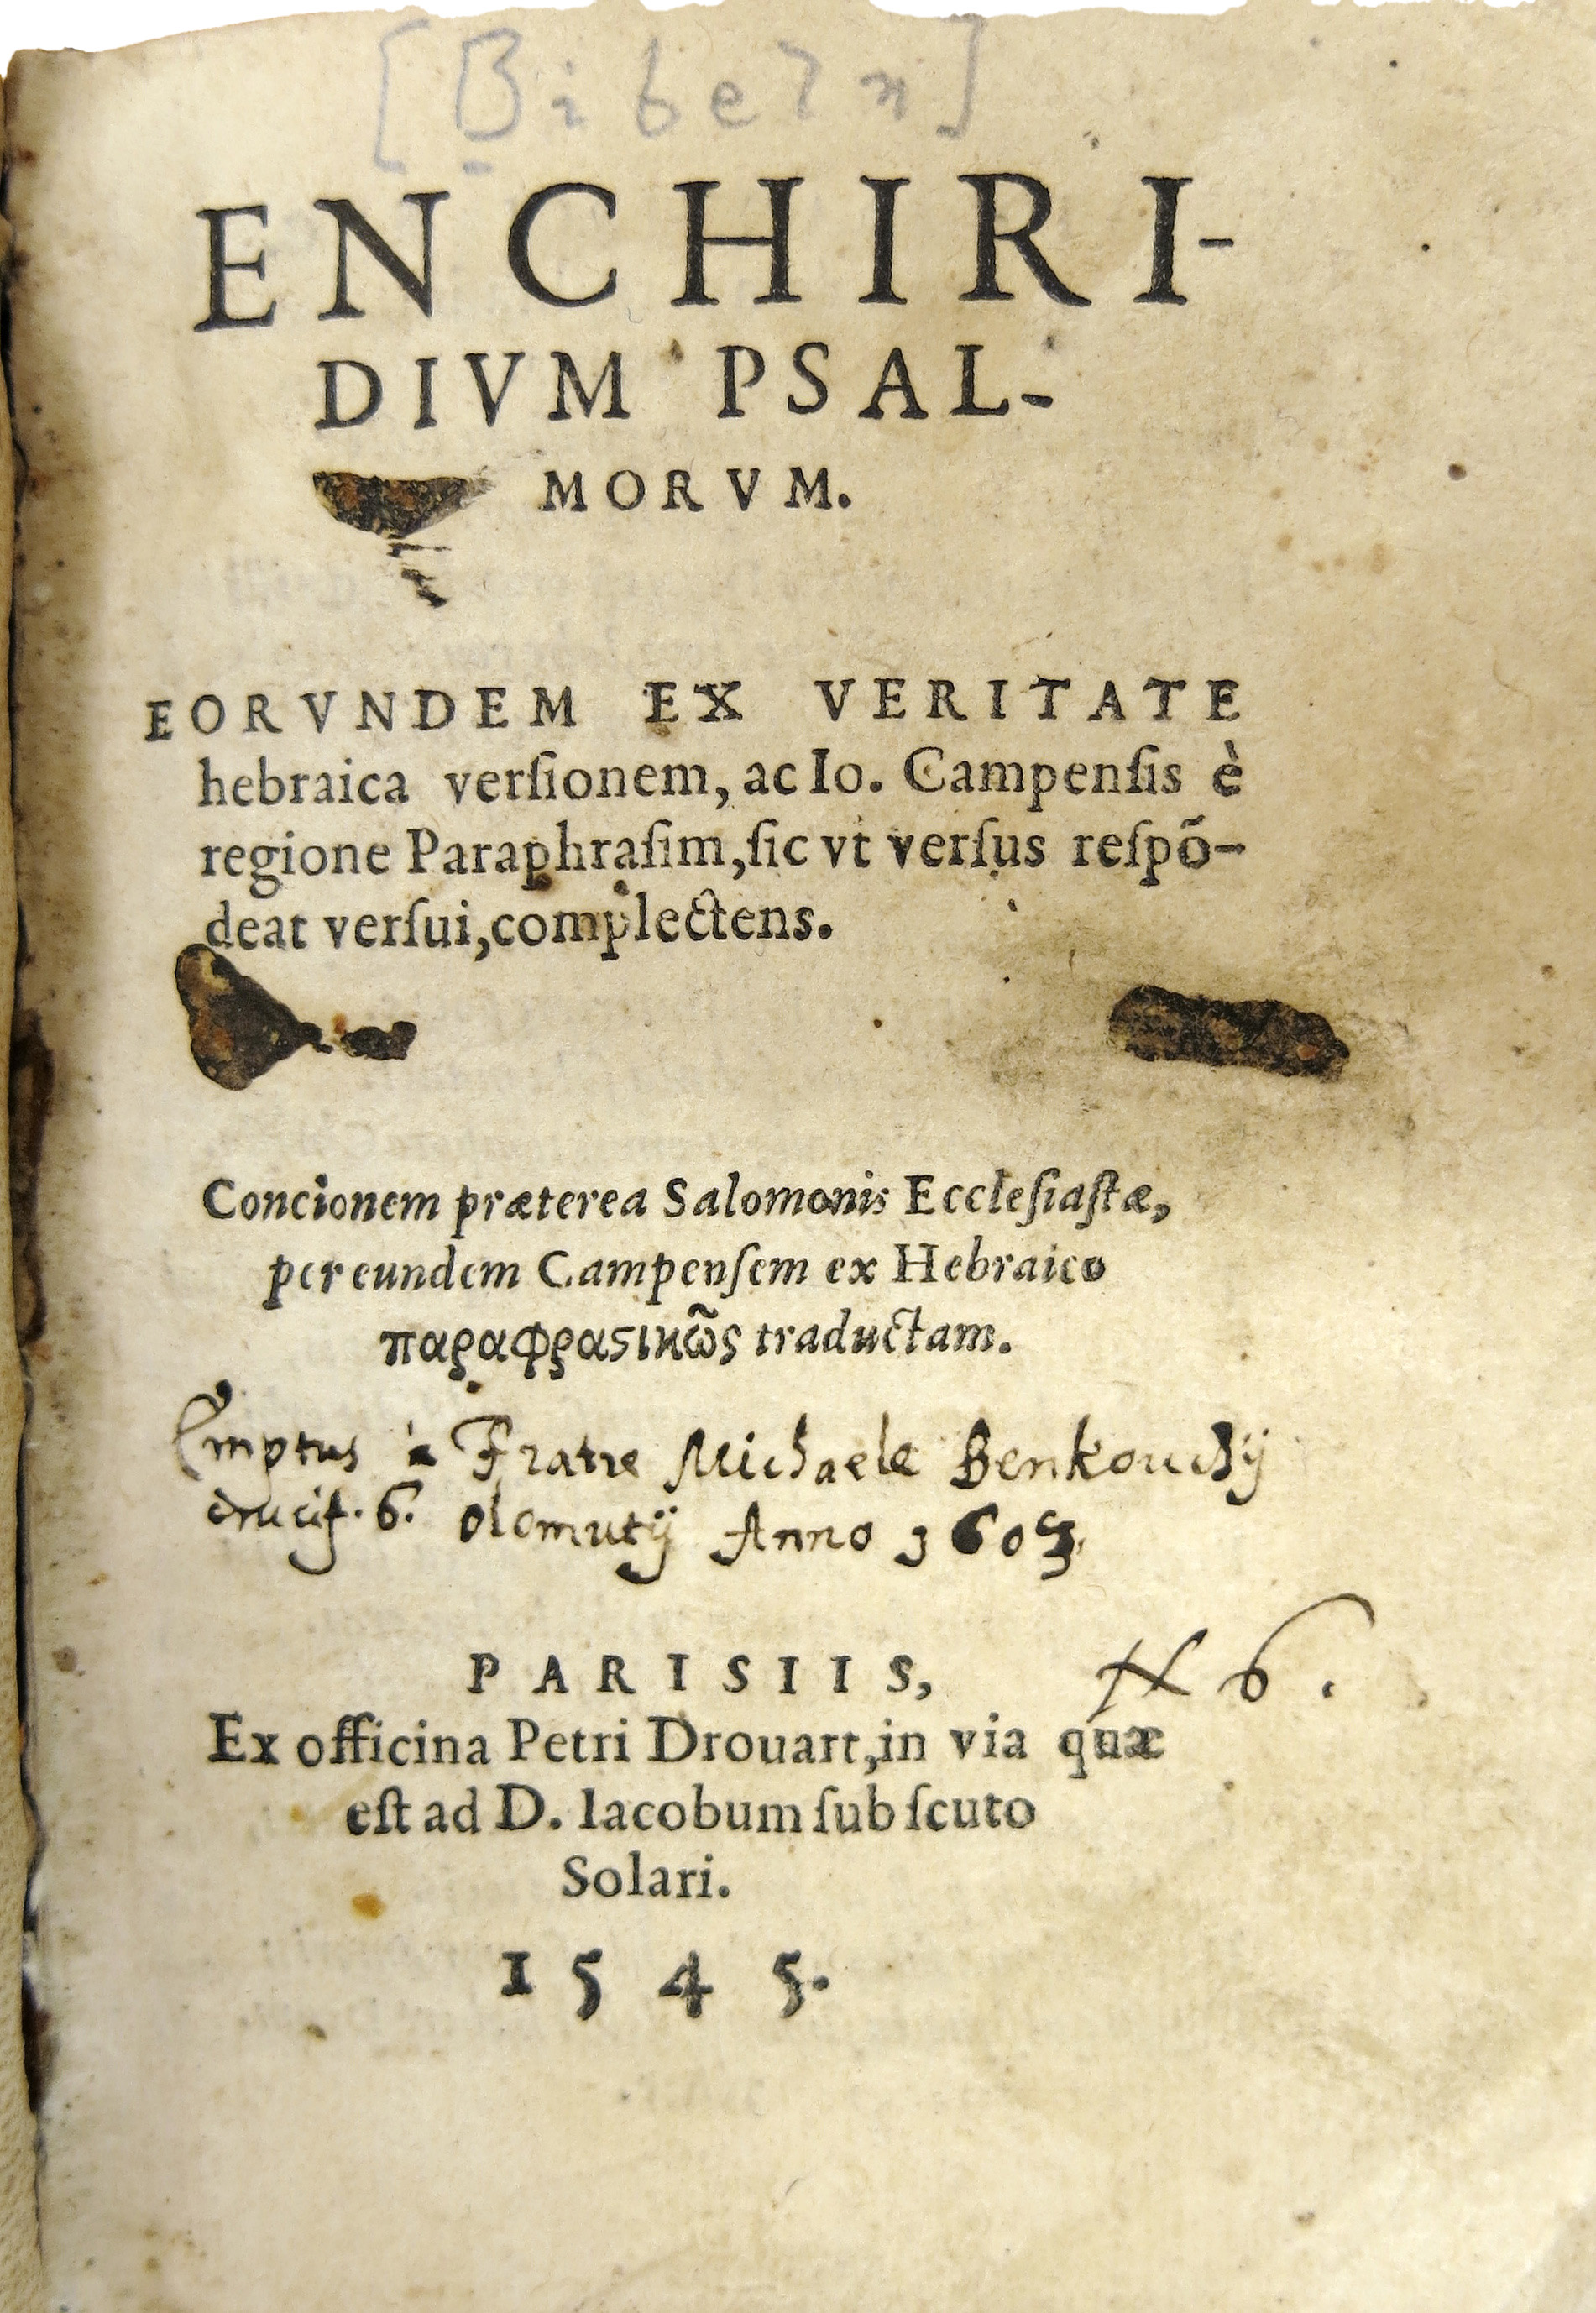 [Bibeln]
ENCHIRI-
DIVM PSAL-
MORVM.
EORVNDEM EX VERITATE
hebraica verſionem, ac Io. Campenſis è
regione Paraphraſim, ſic vt verſus reſpõ-
deat verſui, complectens.
Concionem præterea Salomonis Eccleſiaſtæ,
per eundem Campenſem ex Hebraico
παραφραστικῶς traductam.
Emptus à Fratre Michaele
crucif. 6. Olomutij Anno
PARISIIS,
N 6.
Ex officina Petri Drouart, in via quæ
eſt ad D. Iacobum ſub ſcuto
Solari.
1545.